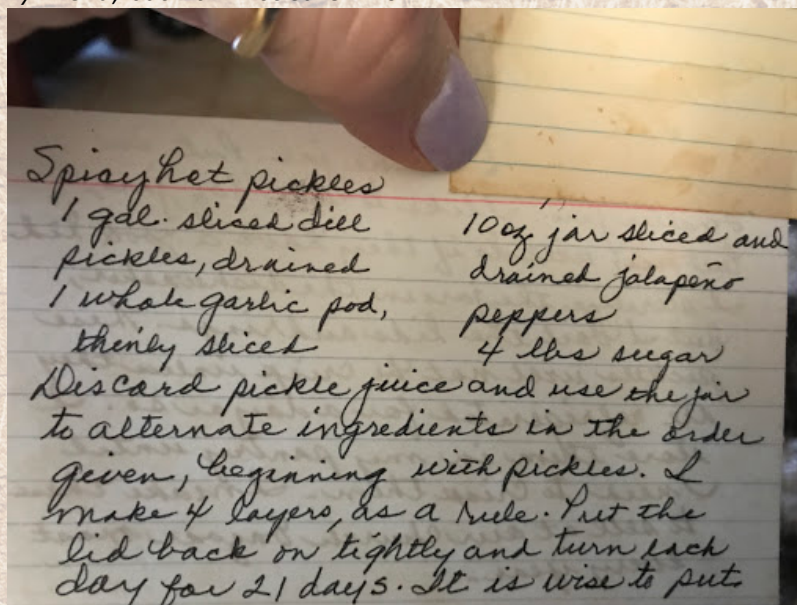 Spicy hot pickles
1 gal. sliced dill
pickles, drained
1 whole garlic pod,
thinly sliced
10 oz jar sliced and
drained jalapeño
peppers
4 lbs sugar
Discard pickle juice and use the jar
to alternate ingredients in the order
given, beginning with pickles. I
make 4 layers, as a rule. Put the
lid back on tightly and turn each
day for 21 days. It is wise to put